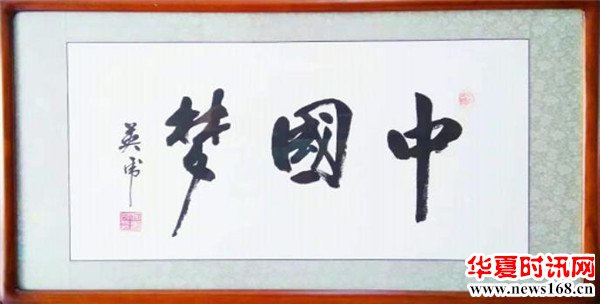 中國梦
英虎
华夏时讯网
www.news168.cn